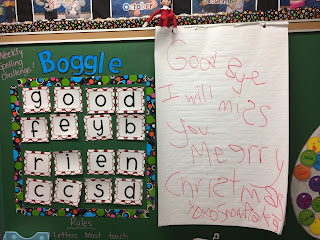 October
Weekly
Spelling
Challenge!
Boggle
g o o d
f e y b
r i e n
c c s d
Rules
Letters Must touch
Good
Bye
I will miss
you
Meerry
Christmas